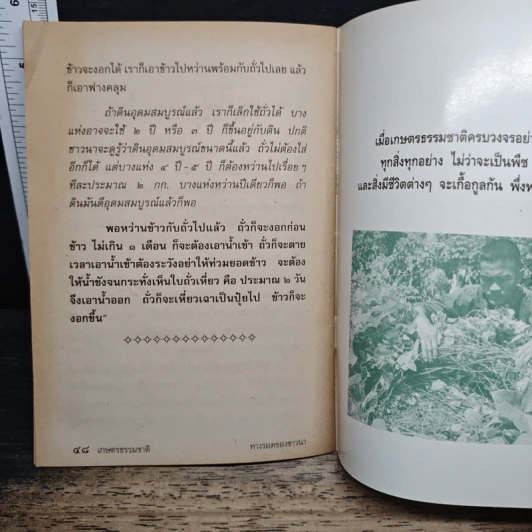 ข้าวจะงอกได้ เราก็เอาข้าวไปหว่านพร้อมกับถั่วไปเลย แล้ว
ก็เอาฟางคลุม
ถ้าดินอุดมสมบูรณ์แล้ว เราก็เลิกใช้ถั่วได้ บาง
แห่งอาจจะใช้ ๒ ปี หรือ ๓ ปี ก็ขึ้นอยู่กับดิน ปกติ
ชาวนาจะดูรู้ว่าดินอุดมสมบูรณ์ขนาดนี้แล้ว ถั่วไม่ต้องใส่
อีกก็ได้ แต่บางแห่ง ๔ ปี-๕ ปี ก็ต้องหว่านไปเรื่อยๆ
ทีละประมาณ ๒ กก. บางแห่งหว่านปีเดียวก็พอ ถ้า
ดินมันดีอุดมสมบูรณ์แล้วก็พอ
พอหว่านข้าวกับถั่วไปแล้ว ถั่วก็จะงอกก่อน
ข้าว ไม่เกิน ๑ เดือน ก็จะต้องเอาน้ำเข้า ถั่วก็จะตาย
เวลาเอาน้ำเข้าต้องระวังอย่าให้ท่วมยอดข้าว จะต้อง
ให้น้ำขังจนกระทั่งเห็นใบถั่วเหี่ยว คือ ประมาณ ๒ วัน
จึงเอาน้ำออก ถั่วก็จะเหี่ยวเฉาเป็นปุ๋ยไป ข้าวก็จะ
งอกขึ้น"
๔๘ เกษตรธรรมชาติ
ทางรอดของชาวนา
เมื่อเกษตรธรรมชาติครบวงจรอย่า
ทุกสิ่งทุกอย่าง ไม่ว่าจะเป็นพืช
และสิ่งมีชีวิตต่างๆ จะเกื้อกูลกัน